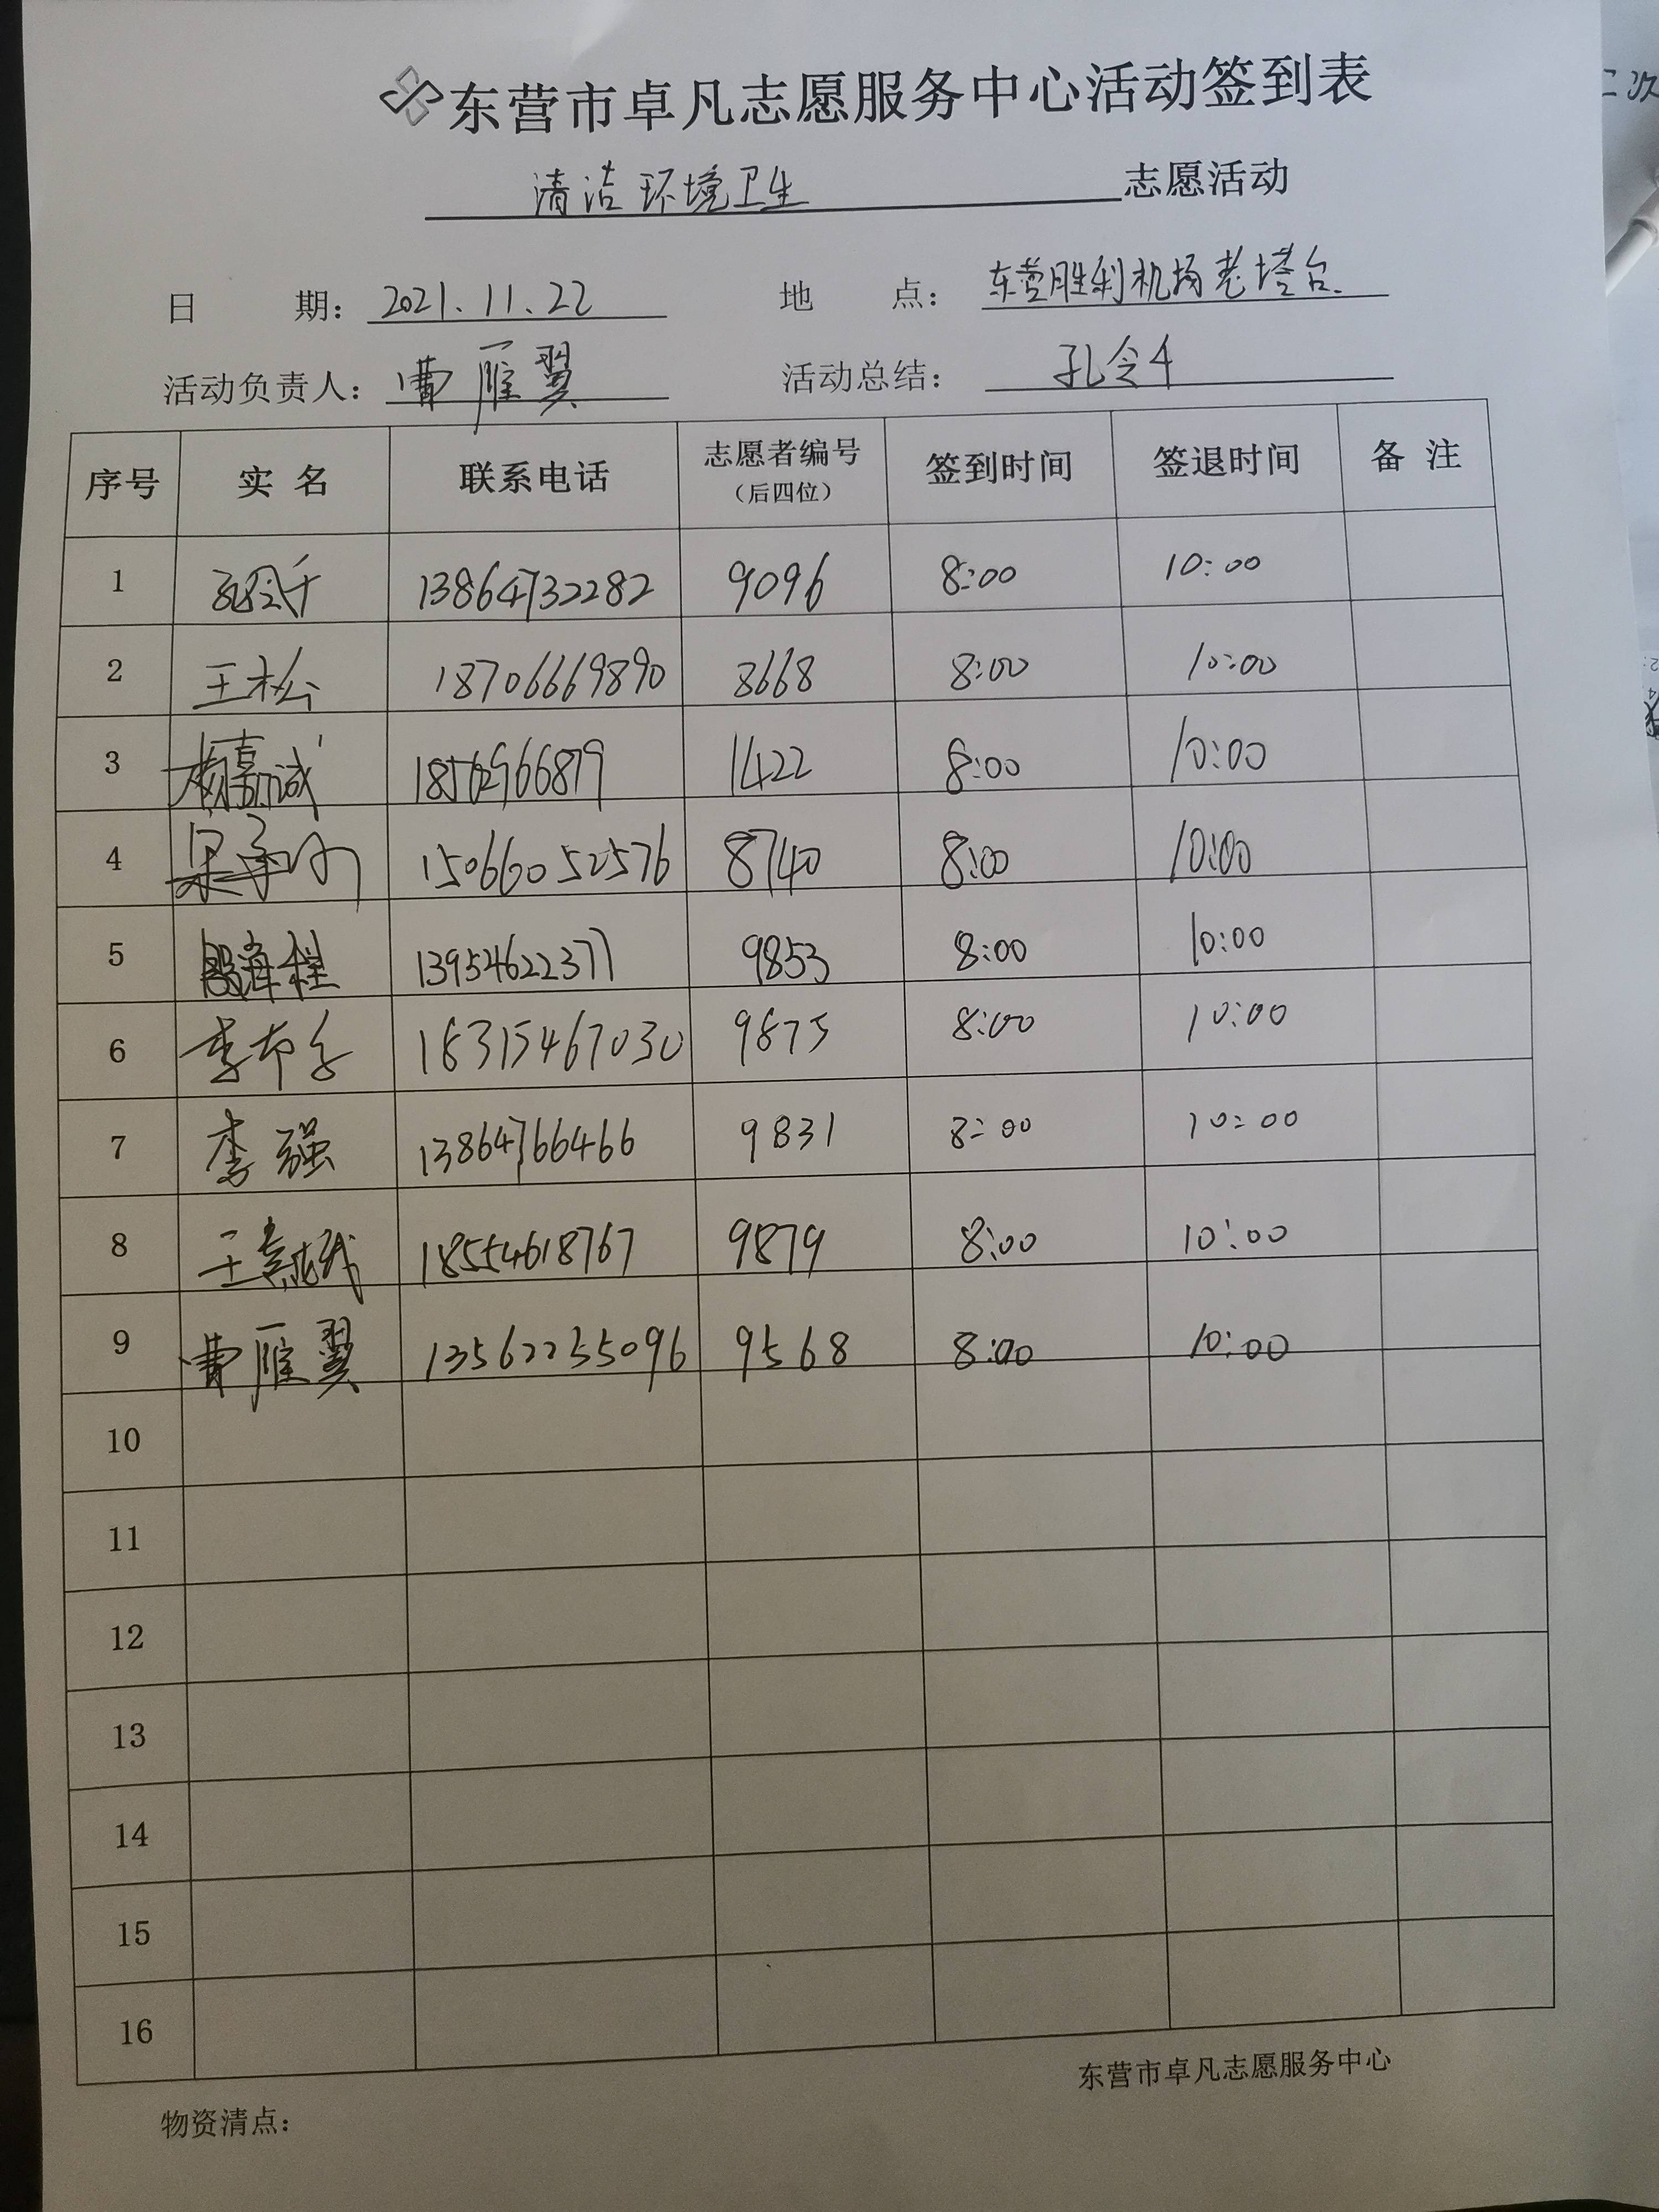 东营市卓凡志愿服务中心活动签到表
清洁环境卫生 志愿活动
日 期: 2021.11.22 地 点: 东营胜利机场老塔台.
活动负责人: 曹雁翼 活动总结: 孔令千
序号 实 名 联系电话 志愿者编号(后四位) 签到时间 签退时间 备 注
1 孔令千 13864732282 9096 8:00 10:00
2 王松 18706669890 8668 8:00 10:00
3 杨嘉诚 18562966879 1422 8:00 10:00
4 15066052576 8740 8:00 10:00
5 13954622377 9853 8:00 10:00
6 李 18315467030 9875 8:00 10:00
7 李强 13864766466 9831 8:00 10:00
8 王 18554618767 9879 8:00 10:00
9 曹雁翼 13562255096 9568 8:00 10:00
10
11
12
13
14
15
16
东营市卓凡志愿服务中心
物资清点:
二次